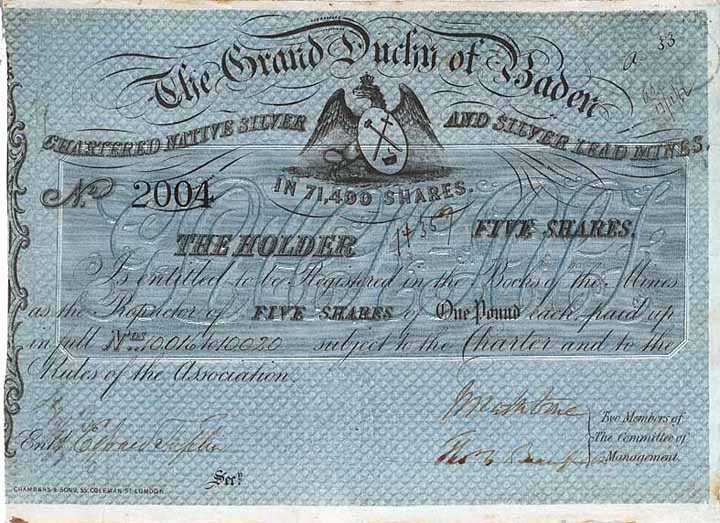 The Grand Duchy of Baden
CHARTERED NATIVE SILVER AND SILVER LEAD MINES.
IN 71,400 SHARES.
No. 2004
THE HOLDER FIVE SHARES.
Is entitled to be Registered in the Books of the Mines
as the Proprietor of FIVE SHARES of One Pound each, paid up
in full Nos. 10016 to 10020 subject to the Charter and to the
Rules of the Association.
Two Members of
The Committee of
Management.
Entd. Edward
Secy.
CHAMBERS & SONS, 55, COLEMAN ST. LONDON.